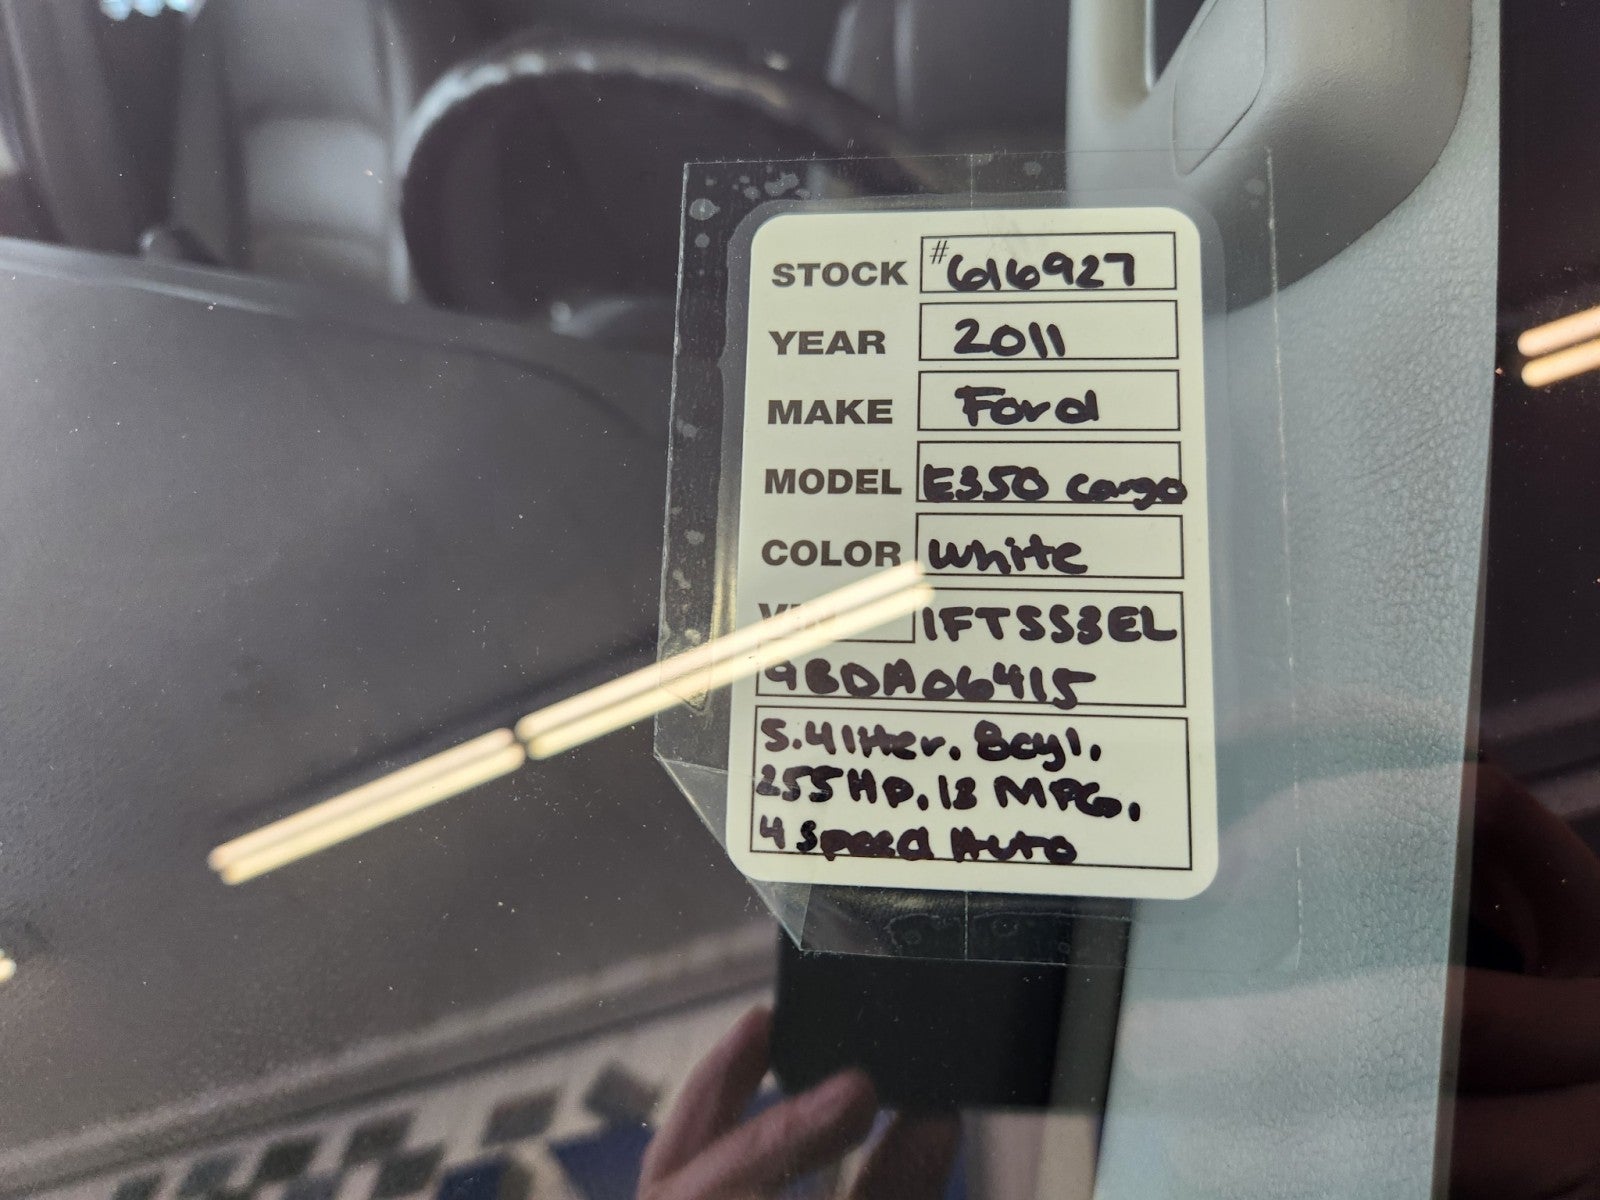 STOCK #616927
YEAR 2011
MAKE Ford
MODEL E350 cargo
COLOR white
VIN 1FTSS3EL
9BDA06415
5.4 litter. 8cyl.
255 Hp. 13 MPG.
4 Speed Auto